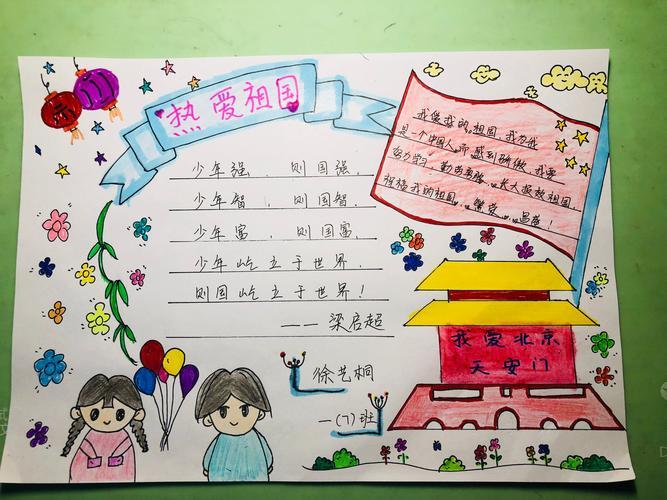 热爱祖国
少年强、则国强、
少年智,则国智、
少年富,则国富、
少年屹立于世界、
则国屹立于世界!
——梁启超
我爱我的祖国,我为我
是一个中国人而感到骄傲,我要
努力学习,长大报效祖国,
祝福我的祖国……繁荣……昌盛!
我爱北京
天安门
徐艺桐
一(7)班